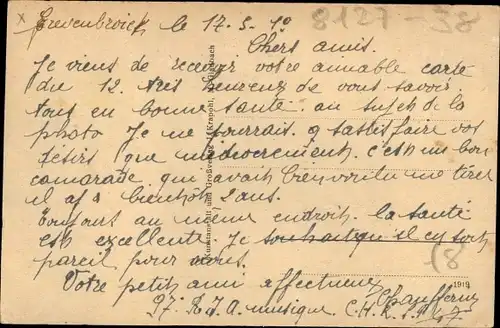 Grevenbroich le 17-5-19
8127-38
Chers amis.
Je viens de recevoir votre aimable carte
du 12. très heureux de vous savoir
tous en bonne santé. au sujet de la
photo Je ne pourrais y satisfaire vos
désirs que médiocrement, c'est un bon
camarade qui avait bien voulu me tirer
il y a bientôt 2 ans.
Toujours au même endroit. la santé
est excellente. Je souhait qu'il en soit
pareil pour vous.
Votre petit ami affectueux
97. R.I.A. musique.
1919
18